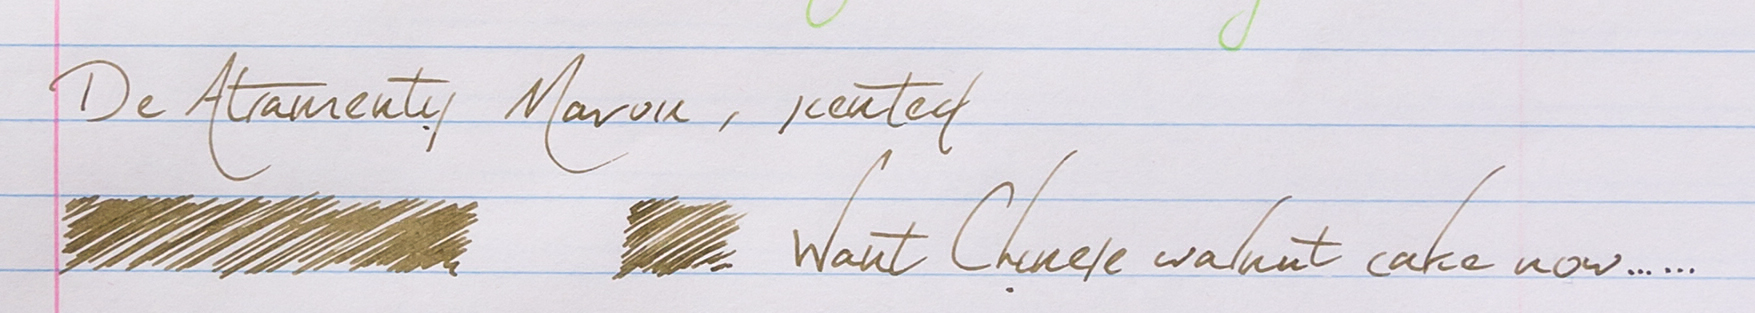 De Atramentis Maron, scented
Want Chinese walnut cake now......